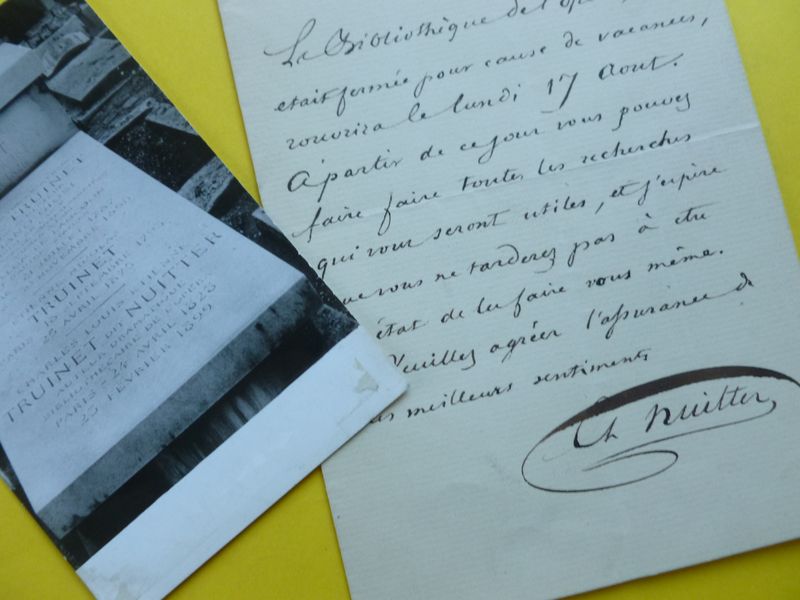 TRUINET
TRUINET
AVRIL
CHARLES LOUIS ETIENNE
TRUINET DIT NUITTER
PARIS 24 AVRIL 1828
25 FEVRIER 1899
La Bibliothèque de l'op
etait fermée pour cause de vacances,
rouvrira le lundi 17 Aout.
À partir de ce jour vous pouvez
faire faire toutes les recherches
qui vous seront utiles, et j'espère
que vous ne tarderez pas à etre
état de les faire vous même.
Veuillez agréer l'assurance de
meilleurs sentiments
Ch Nuitter